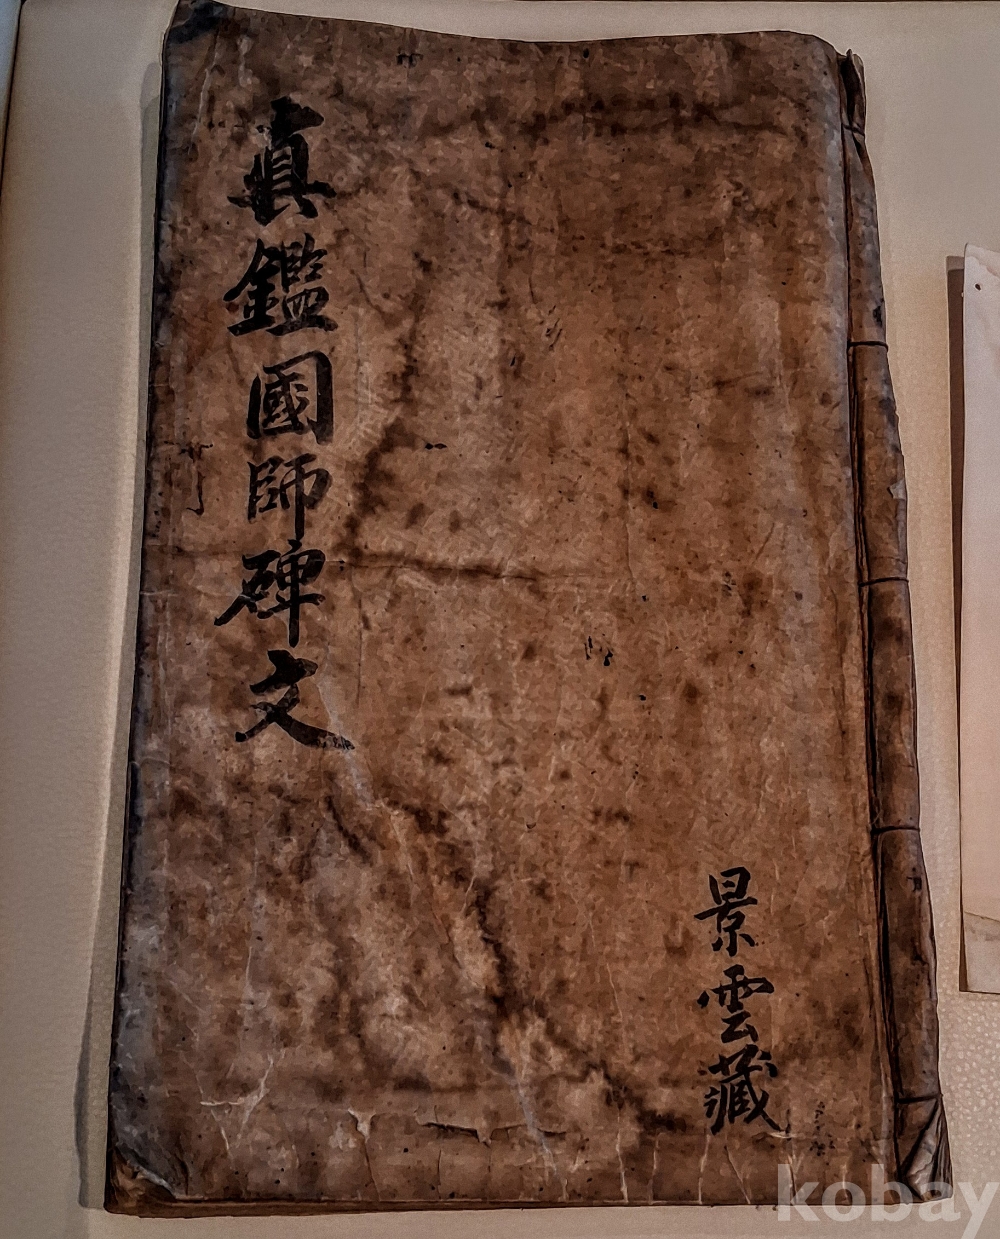 真鑑國師碑文
景雲藏
kobay